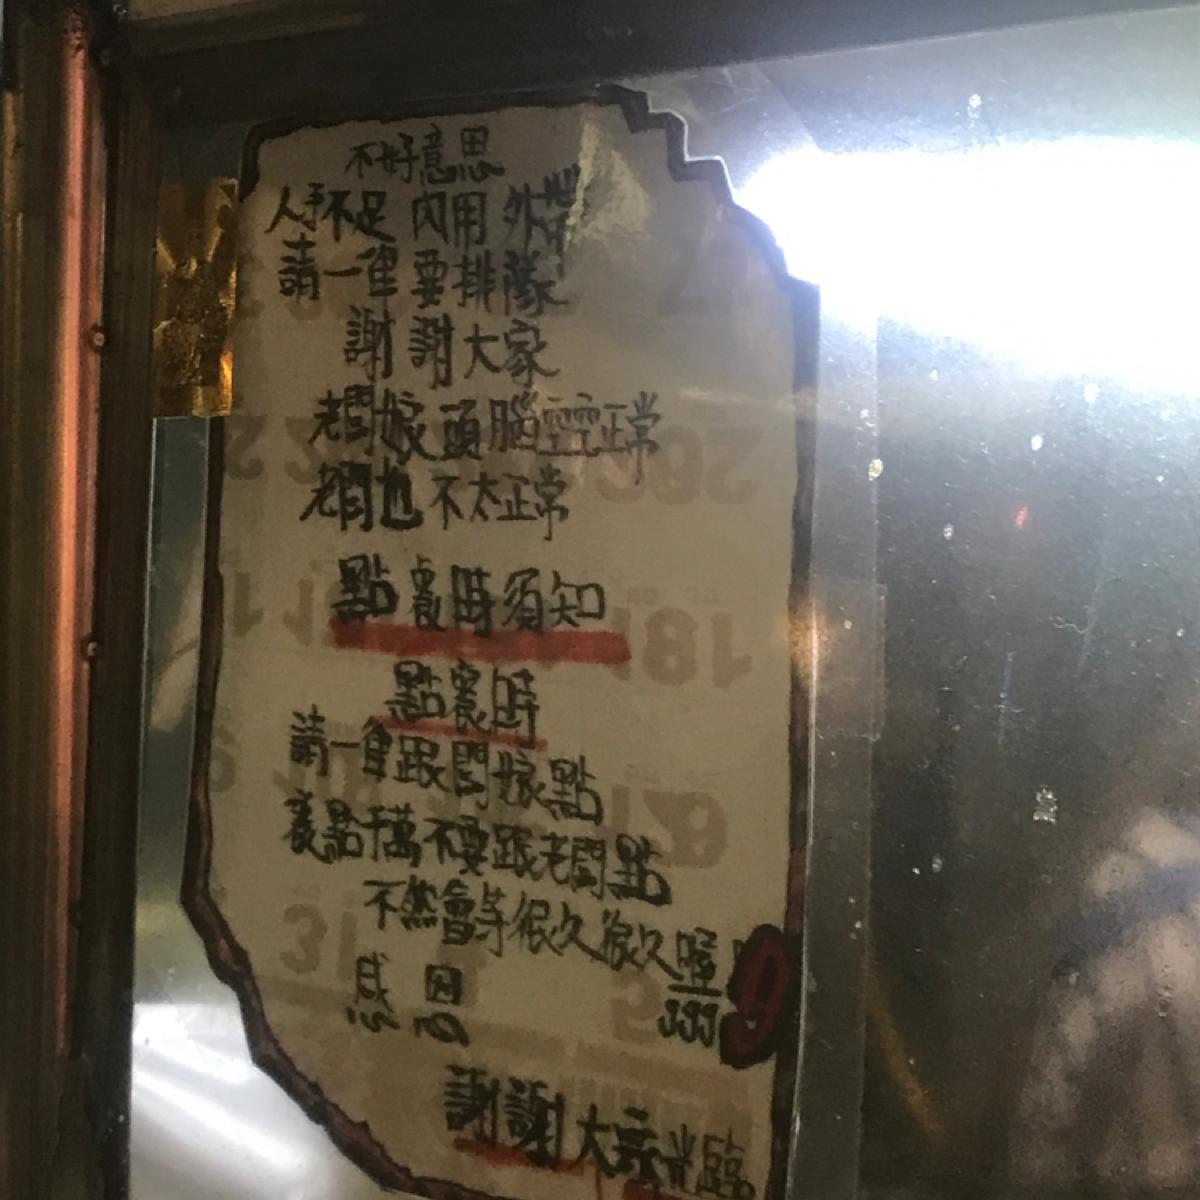 不好意思
人手不足 內用 外帶
請一律要排隊
謝謝大家
老闆娘頭腦空空正常
老闆也不太正常
點餐時須知
點餐時
請一律跟闆娘點
餐點千萬不要跟老闆點
不然會等很久很久喔
感恩
謝謝大家光臨